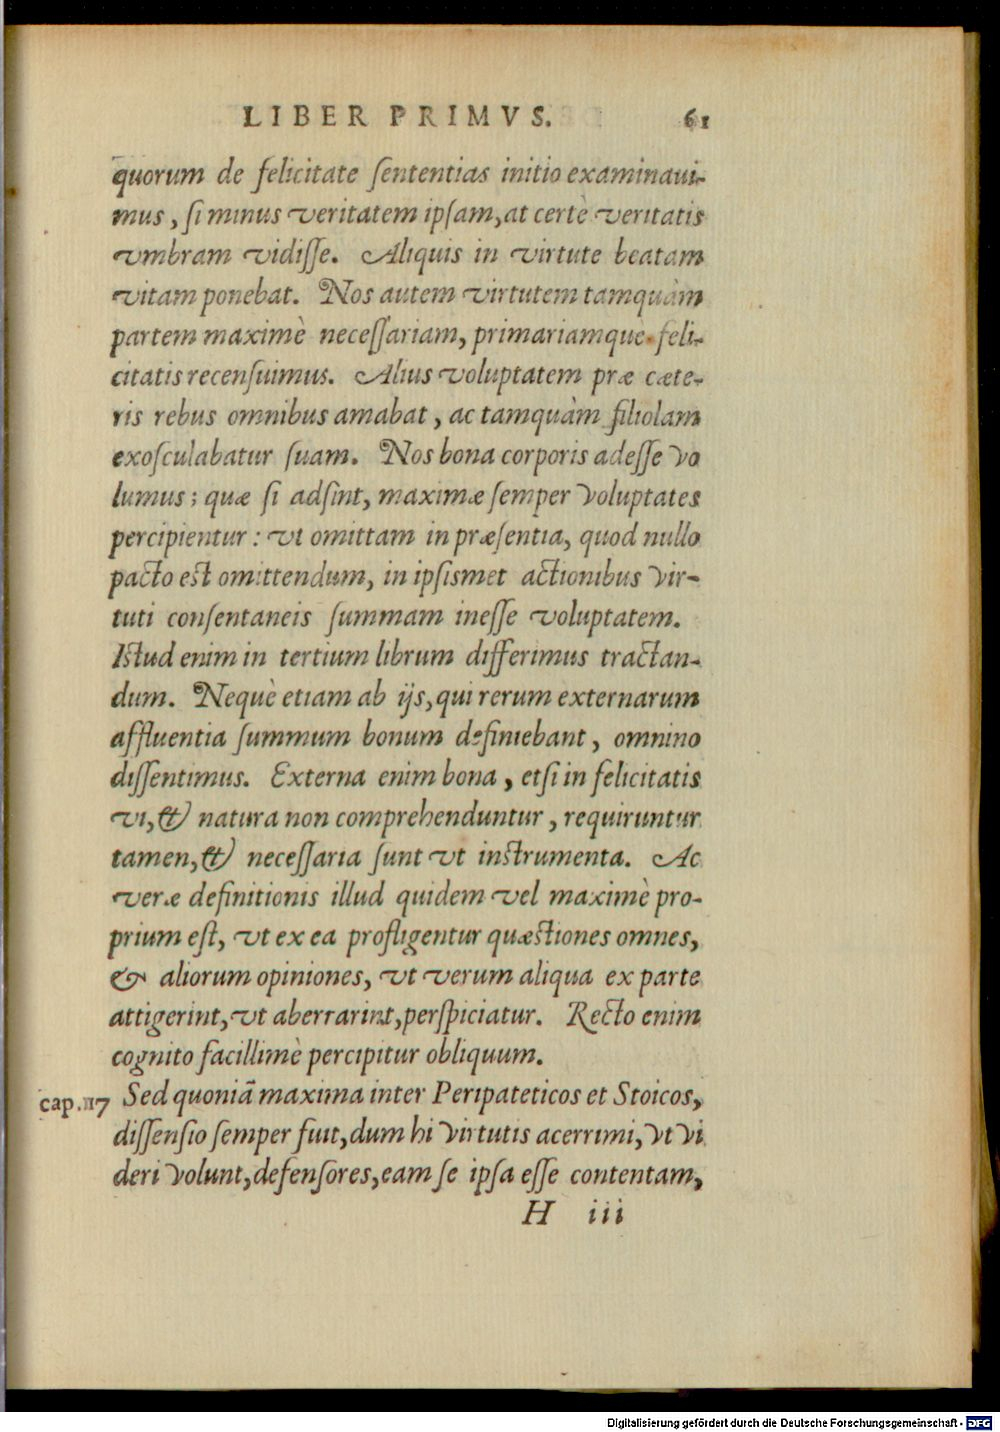 LIBER PRIMVS. 61
quorum de felicitate ſententias initio examinaui-
mus, ſi minus veritatem ipſam, at certè veritatis
vmbram vidiſſe. Aliquis in virtute beatam
vitam ponebat. Nos autem virtutem tamquàm
partem maximè neceſſariam, primariamque feli-
citatis recenſuimus. Alius voluptatem præ cæte-
ris rebus omnibus amabat, ac tamquàm filiolam
exoſculabatur ſuam. Nos bona corporis adeſſe vo
lumus; quæ ſi adſint, maximæ ſemper voluptates
percipientur: vt omittam in præſentia, quod nullo
pacto est omittendum, in ipſismet actionibus vir-
tuti conſentaneis ſummam ineſſe voluptatem.
Istud enim in tertium librum differimus tractan-
dum. Nequè etiam ab ijs, qui rerum externarum
affluentia ſummum bonum definiebant, omnino
diſſentimus. Externa enim bona, etſi in felicitatis
vi, & natura non comprehenduntur, requiruntur
tamen, & neceſſaria ſunt vt instrumenta. Ac
veræ definitionis illud quidem vel maximè pro-
prium eſt, vt ex ea profligentur quæstiones omnes,
& aliorum opiniones, vt verum aliqua ex parte
attigerint, vt aberrarint, perſpiciatur. Recto enim
cognito facillimè percipitur obliquum.
cap. 117 Sed quoniã maxima inter Peripateticos et Stoicos,
diſſenſio ſemper fuit, dum hi virtutis acerrimi, vt vi
deri volunt, defenſores, eam ſe ipſa eſſe contentam,
H iii
Digitalisierung gefördert durch die Deutsche Forschungsgemeinschaft - DFG